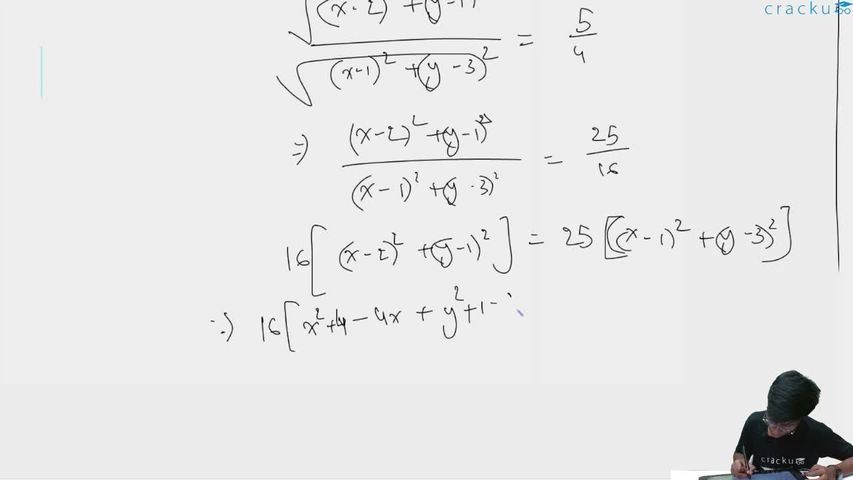 cracku
√(x-2)² + (y-1)² / √(x-1)² + (y-3)² = 5/4
⇒ (x-2)² + (y-1)² / (x-1)² + (y-3)² = 25/16
16[(x-2)² + (y-1)²] = 25[(x-1)² + (y-3)²]
⇒ 16[x² + 4 - 4x + y² + 1 -
cracku